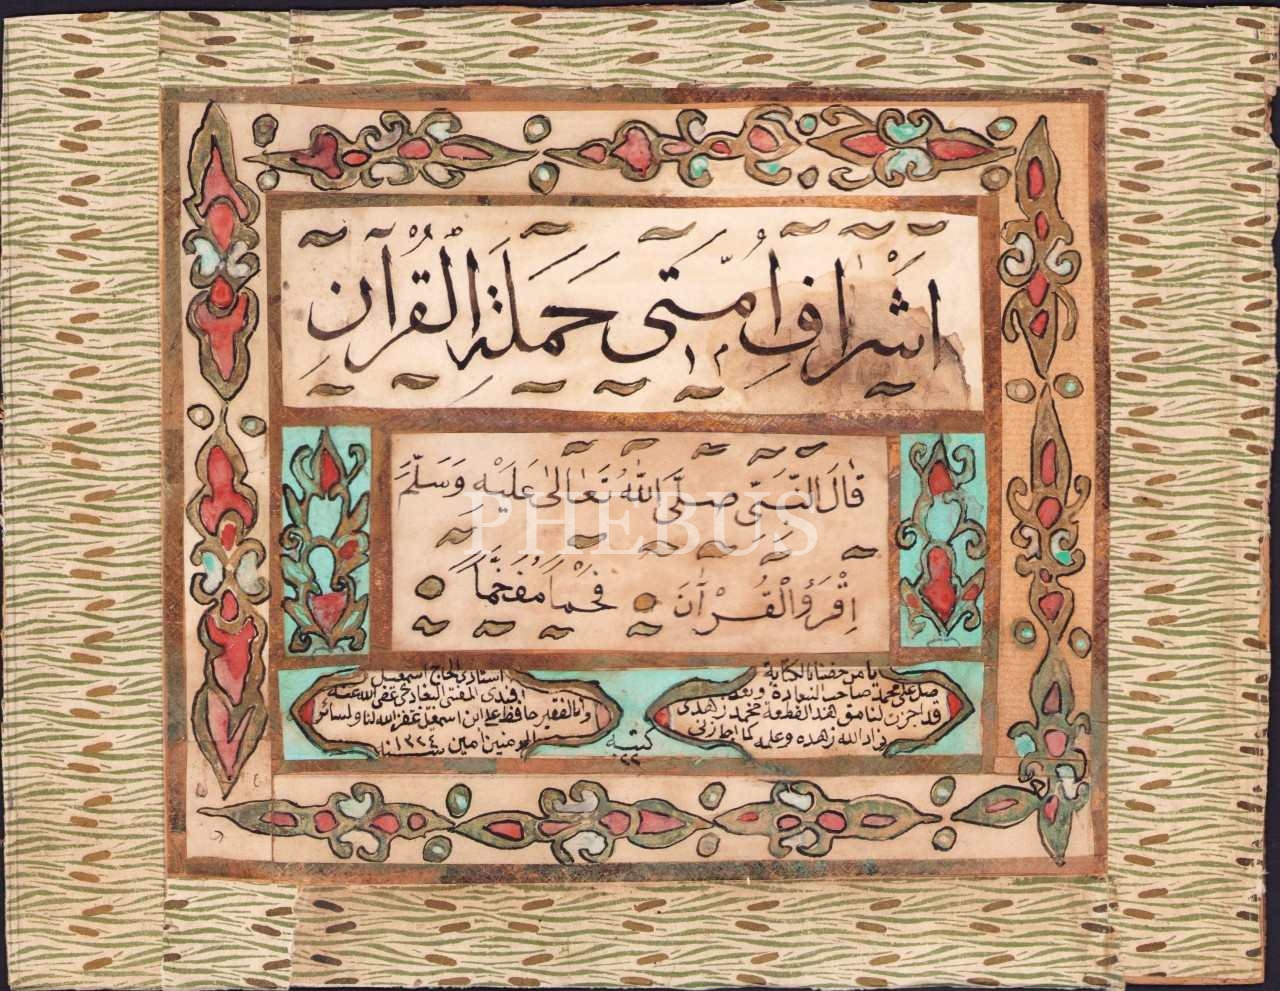 اَشْرَافِ اُمَّتِي حَمَلَةُ الْقُرْآنِ
قَالَ النَّبِيّ صَلَّى اللّٰهُ تَعَالٰى عَلَيْهِ وَسَلَّمَ
اِقْرَؤُ الْقُرْآنَ فَخْمًا مُفَخَّمًا
يا من حفنا بالكتابة
صل على محمد صاحب السعادة وبعد
قد اجزت لنامق هذه القطعة محمد زهدى
زاد الله زهده وعلمه كما اجازنى
استاذى الحاج اسمعيل
افندى المفتى البغدادى عفى الله عنه
وانا الفقير حافظ على ابن اسمعيل غفر الله لنا ولسائر
المؤمنين امين سنة ١٣٢٤
كتبه
PHEBUS